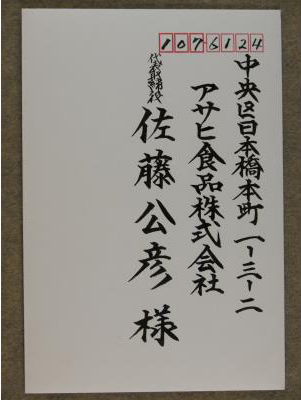 1076124
中央区日本橋本町一-三-二
アサヒ食品株式会社
代表取締役
佐藤公彦様